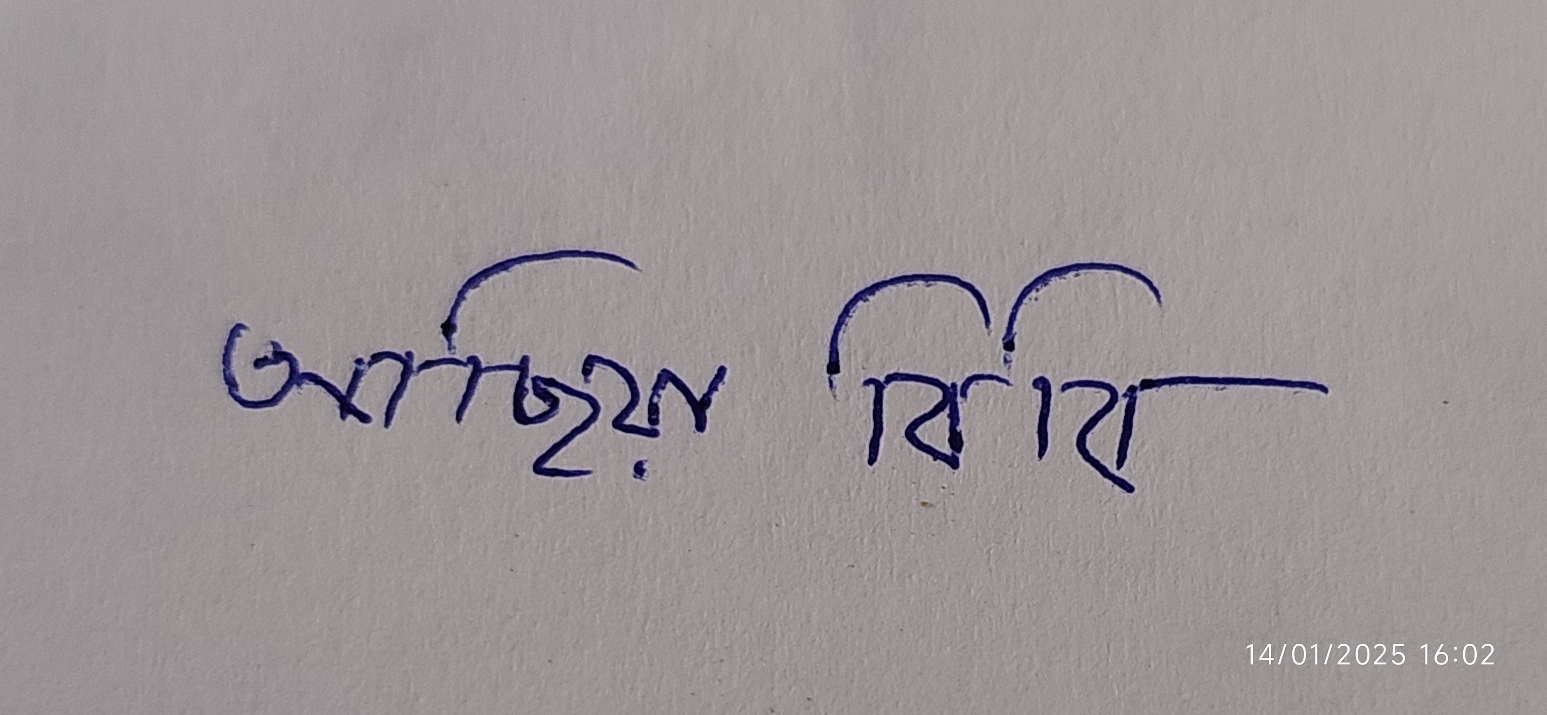 আছিয়া বিবি
14/01/2025 16:02